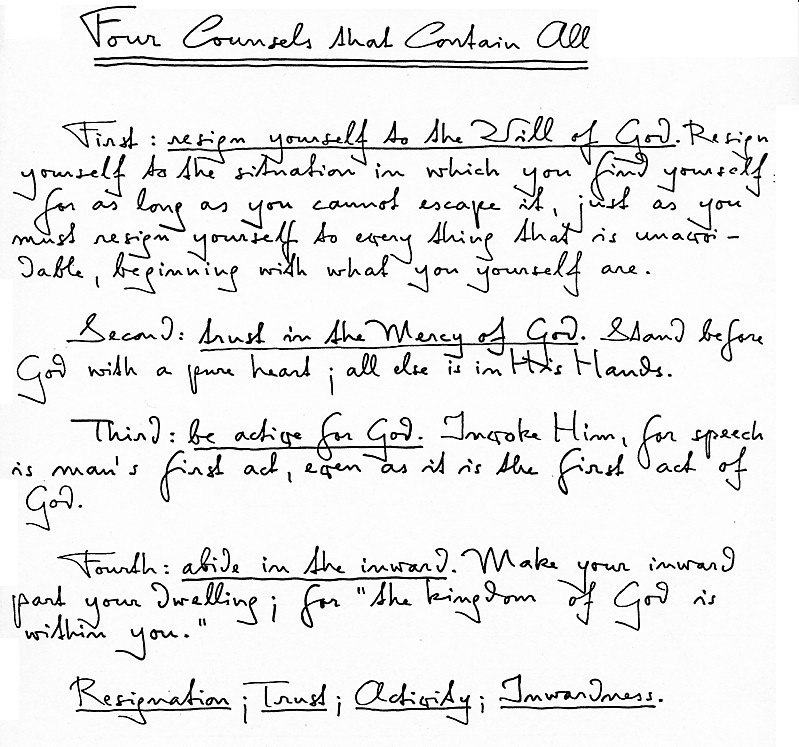 Four Counsels that Contain All
First: resign yourself to the Will of God. Resign
yourself to the situation in which you find yourself:
for as long as you cannot escape it, just as you
must resign yourself to every thing that is unavoi-
dable, beginning with what you yourself are.
Second: trust in the Mercy of God. Stand before
God with a pure heart; all else is in His Hands.
Third: be active for God. Invoke Him, for speech
is man's first act, even as it is the first act of
God.
Fourth: abide in the inward. Make your inward
part your dwelling; for "the kingdom of God is
within you."
Resignation; Trust; Activity; Inwardness.